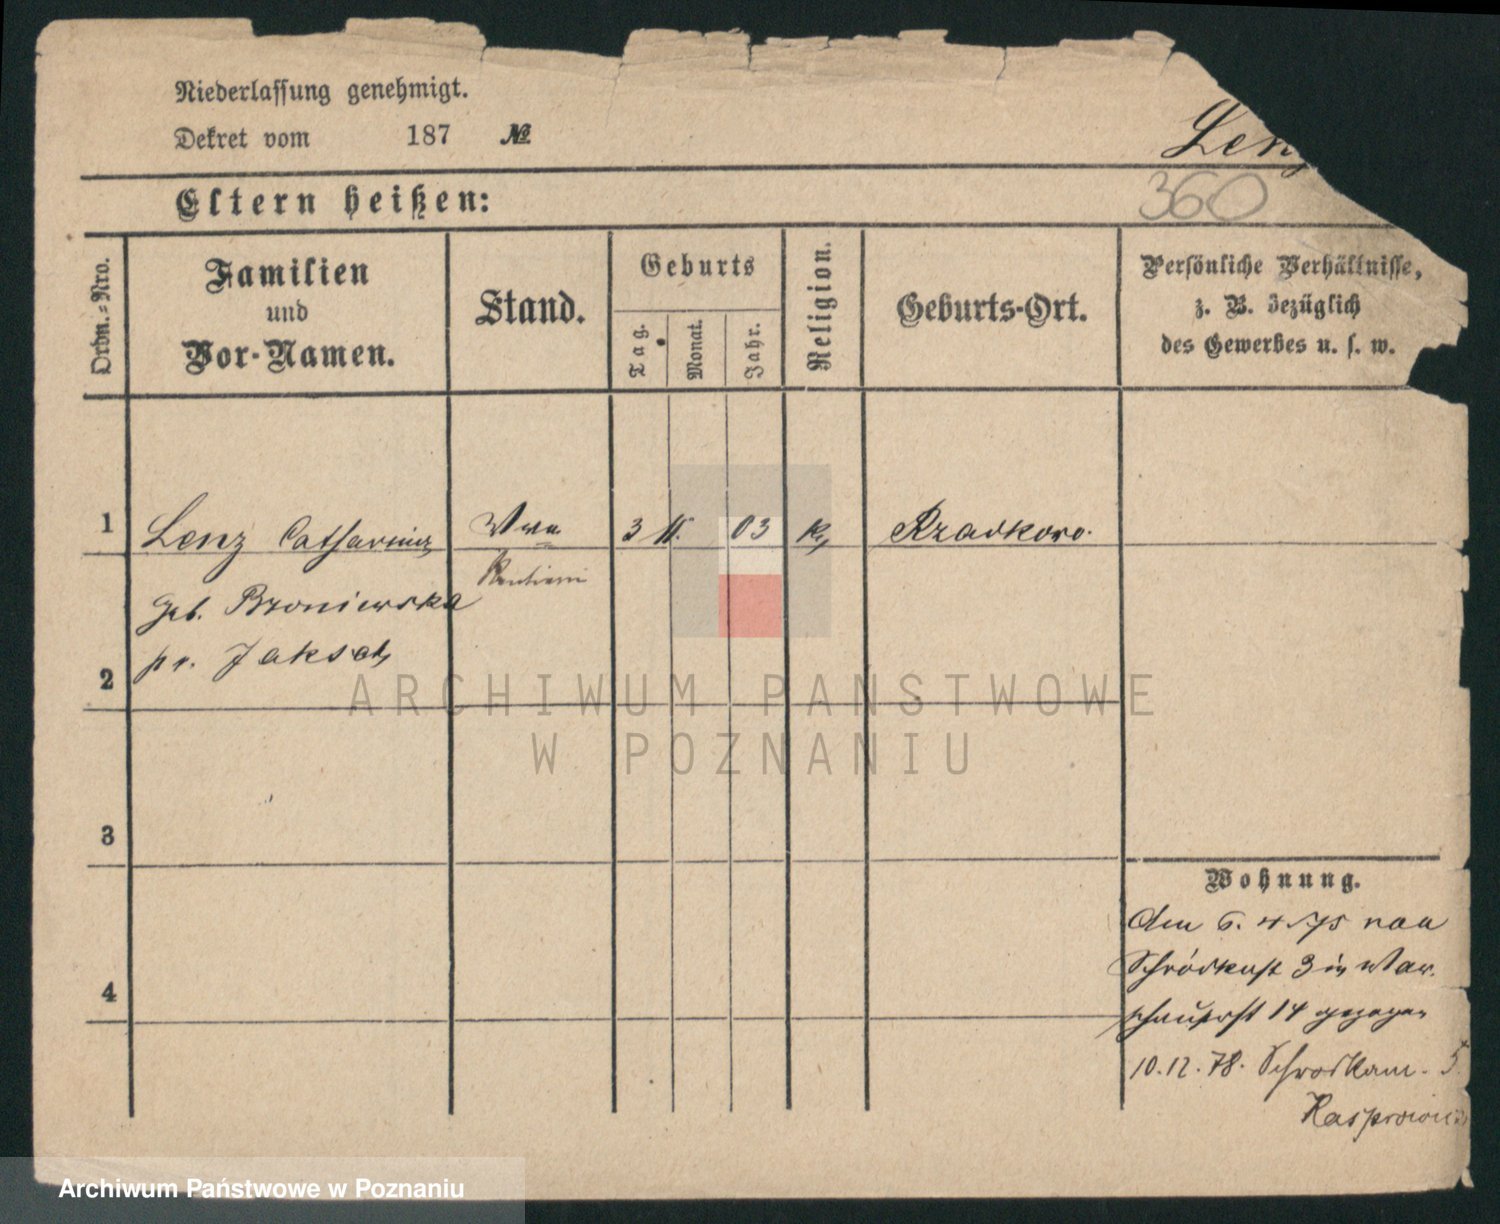 Niederlassung genehmigt.
Dekret vom 187 №
Lenz
360
Eltern heißen:
Ordn.-Nro.
Familien
und
Vor-Namen.
Stand.
Geburts
Tag.
Monat.
Jahr.
Religion.
Geburts-Ort.
Persönliche Verhältnisse,
z. B. bezüglich
des Gewerbes u. s. w.
1 Lenz Catharina Wwe 3 11. 03 k. Rzadkowo.
geb. Broniewska
2 pr. Jaksch
3
4
Wohnung.
Am 6. 4 75 von
Schrodkast 3 in War
schauerst 14 gezogen
10.12.78. Schrodkam. 5
Kasprowicz
ARCHIWUM PAŃSTWOWE
W POZNANIU
Archiwum Państwowe w Poznaniu